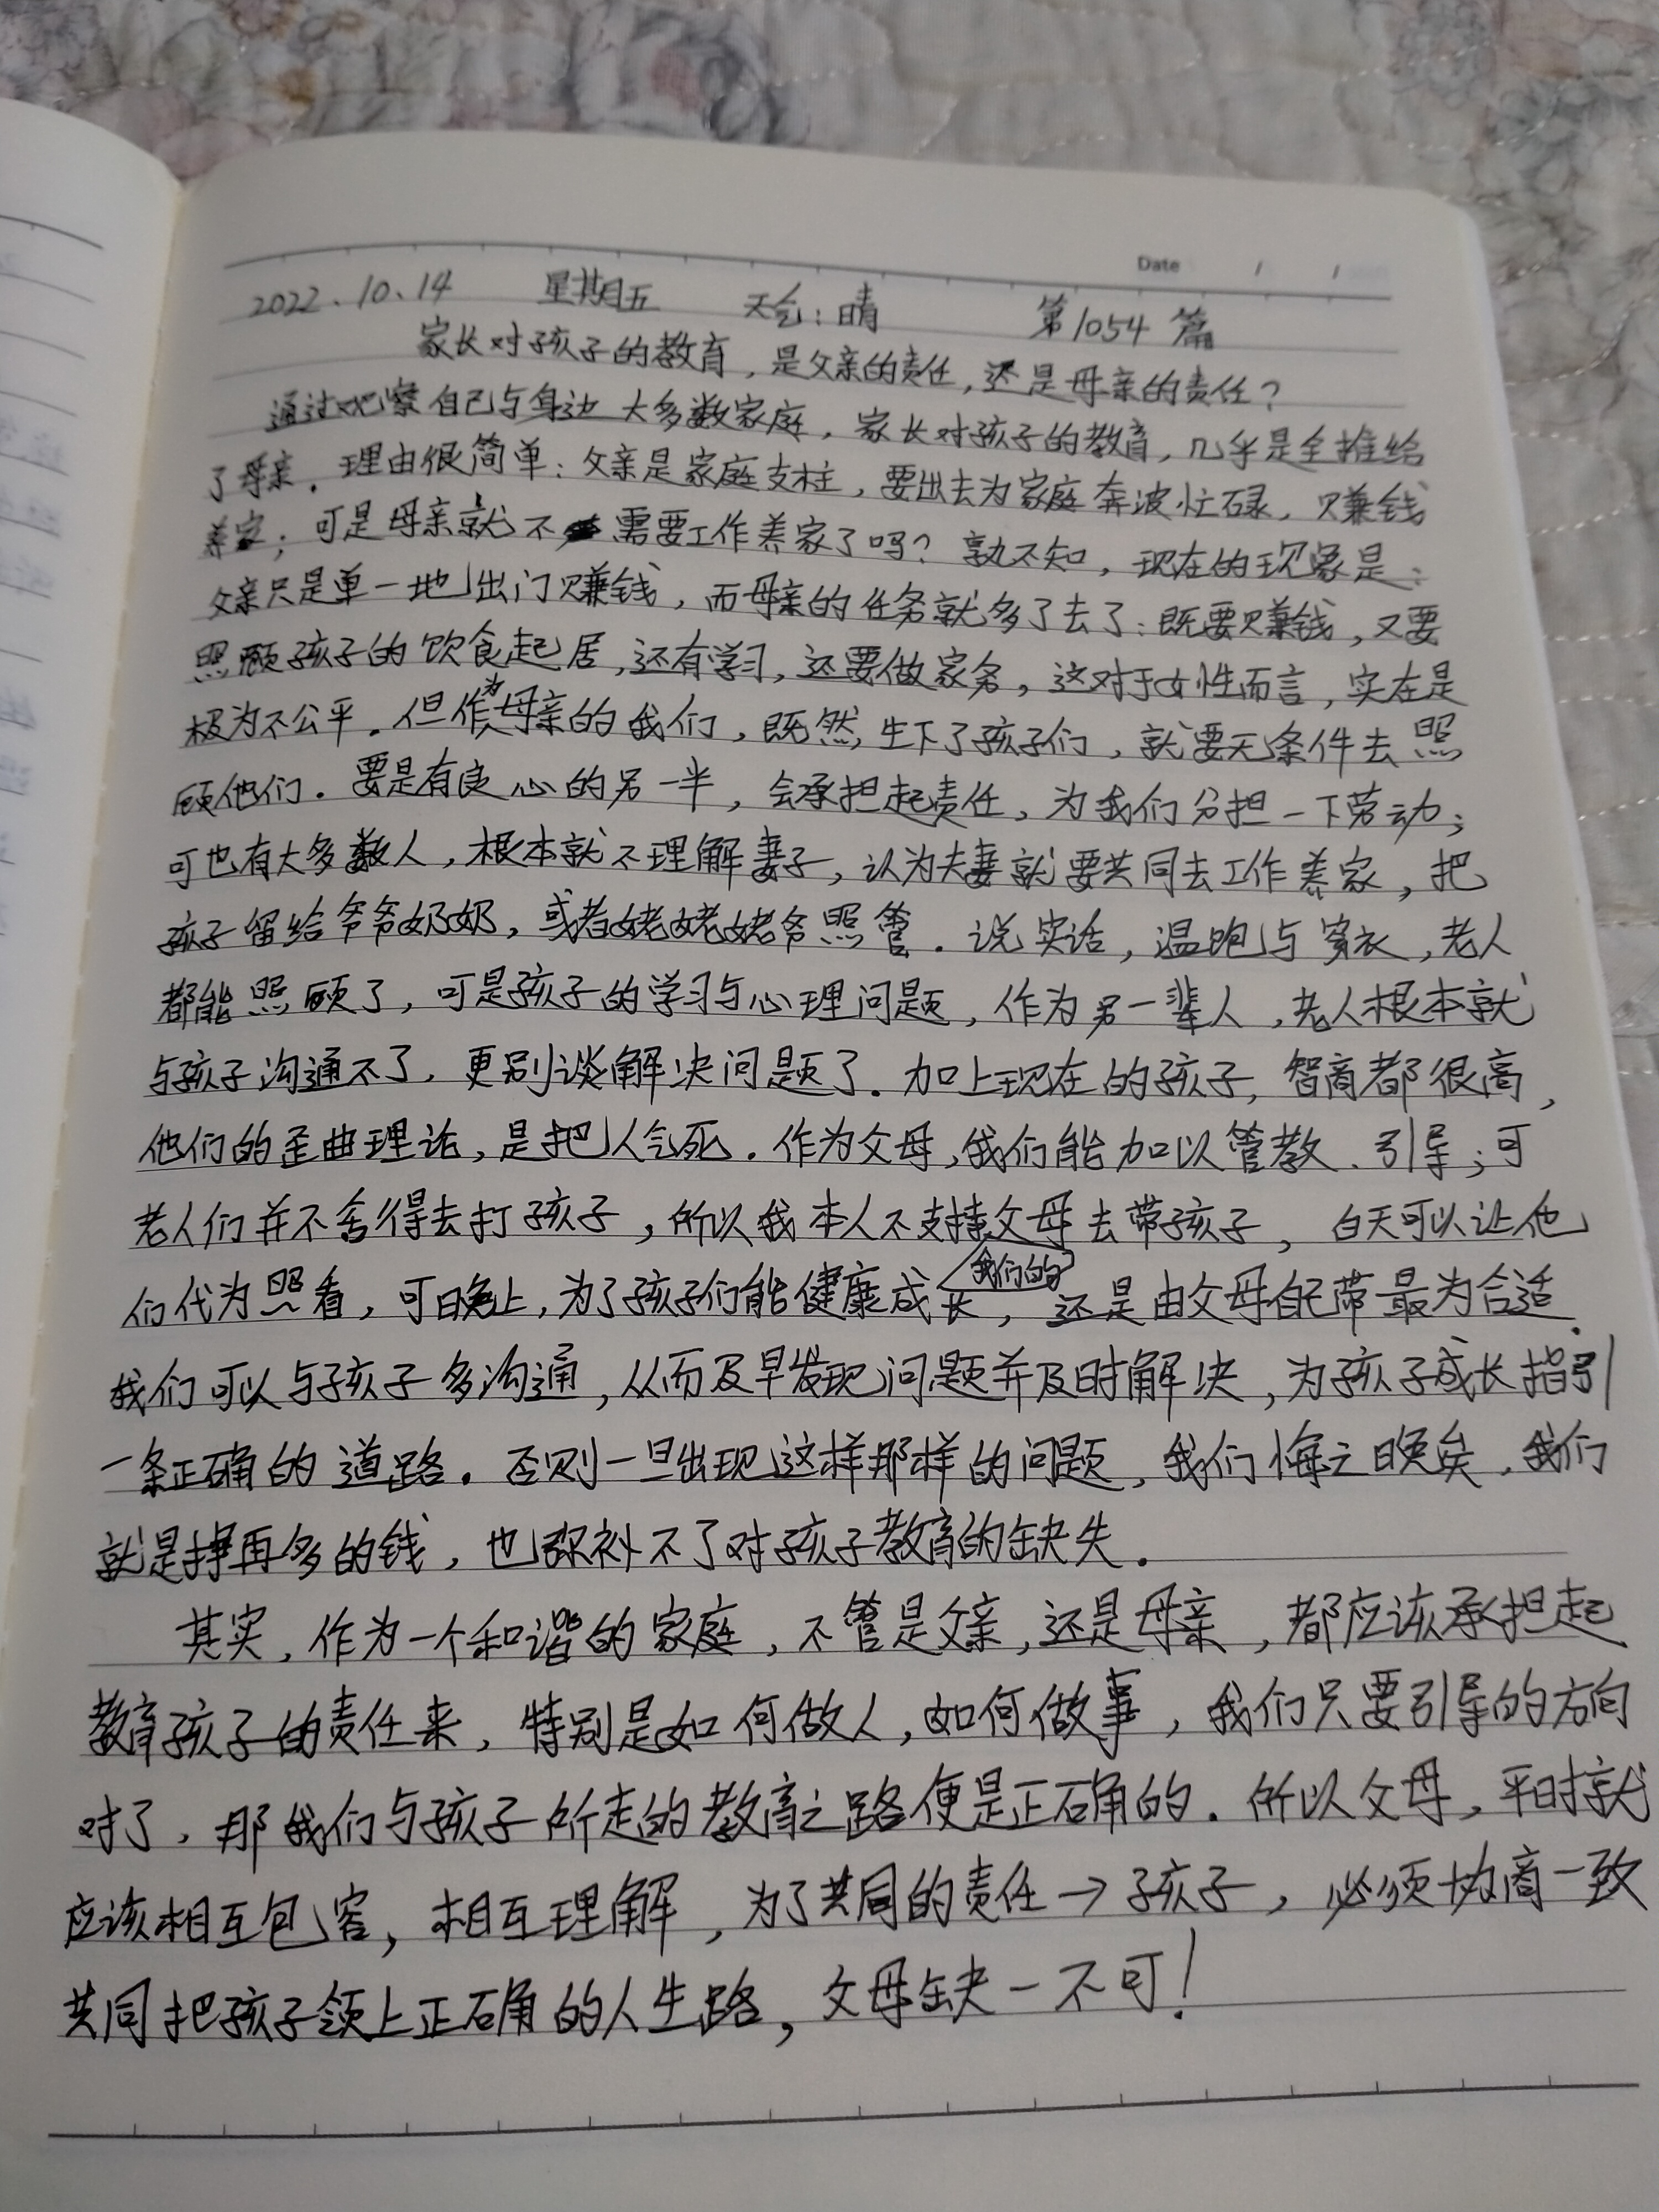 Date / /
2022、10、14 星期五 天气:晴 第1054篇
家长对孩子的教育,是父亲的责任,还是母亲的责任?
通过观察自己与身边大多数家庭,家长对孩子的教育,几乎是全推给
了母亲。理由很简单:父亲是家庭支柱,要出去为家庭奔波忙碌,赚钱
养家;可是母亲就不需要工作养家了吗?孰不知,现在的现象是:
父亲只是单一地出门赚钱,而母亲的任务就多了去了:既要赚钱,又要
照顾孩子的饮食起居,还有学习,还要做家务,这对于女性而言,实在是
极为不公平。但作为母亲的我们,既然生下了孩子们,就要无条件去照
顾他们。要是有良心的另一半,会承担起责任,为我们分担一下劳动;
可也有大多数人,根本就不理解妻子,认为夫妻就要共同去工作养家,把
孩子留给爷爷奶奶,或者姥姥姥爷照管。说实话,温饱与穿衣,老人
都能照顾了,可是孩子的学习与心理问题,作为另一辈人,老人根本就
与孩子沟通不了,更别谈解决问题了。加上现在的孩子,智商都很高,
他们的歪曲理论,是把人气死。作为父母,我们能加以管教、引导;可
老人们并不舍得去打孩子,所以我本人不支持父母去带孩子,白天可以让他
们代为照看,可晚上,为了孩子们能健康成长,我们的还是由父母自己带最为合适。
我们可以与孩子多沟通,从而及早发现问题并及时解决,为孩子成长指引
一条正确的道路。否则一旦出现这样那样的问题,我们悔之晚矣,我们
就是挣再多的钱,也弥补不了对孩子教育的缺失。
其实,作为一个和谐的家庭,不管是父亲,还是母亲,都应该承担起
教育孩子的责任来,特别是如何做人,如何做事,我们只要引导的方向
对了,那我们与孩子所走的教育之路便是正确的。所以父母,平时就
应该相互包容,相互理解,为了共同的责任→孩子,必须协商一致
共同把孩子领上正确的人生路,父母缺一不可!